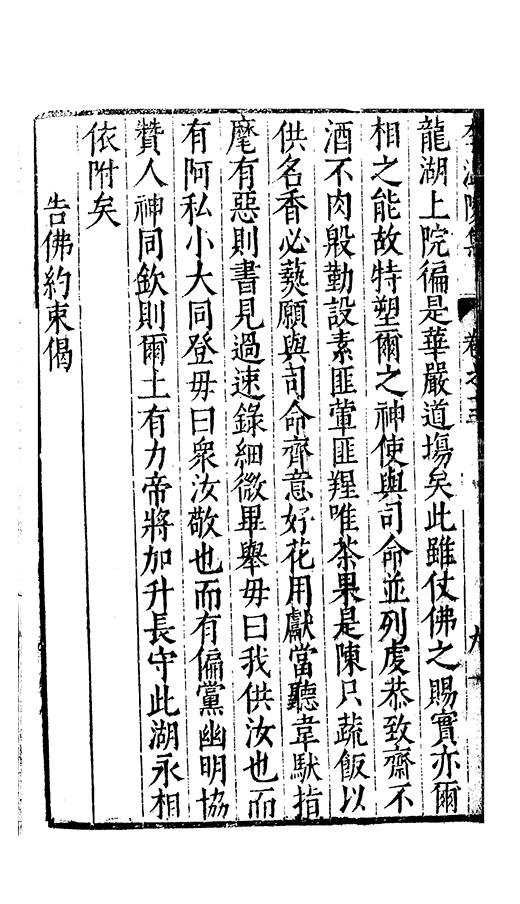 龍湖上院徧是華嚴道塲矣此雖仗佛之賜實亦爾
相之能故特塑爾之神使與司命並列虔恭致齋不
酒不肉殽勤設素匪葷匪羶唯茶果是陳只蔬飯以
供名香必爇願與司命齊意好花用獻當聽韋馱指
麾有惡則書見過速錄細微畢舉毋曰我供汝也而
有阿私小大同登毋曰衆汝敬也而有偏黨幽明協
贊人神同欽則爾土有力帝將加升長守此湖永相
依附矣
告佛約束偈